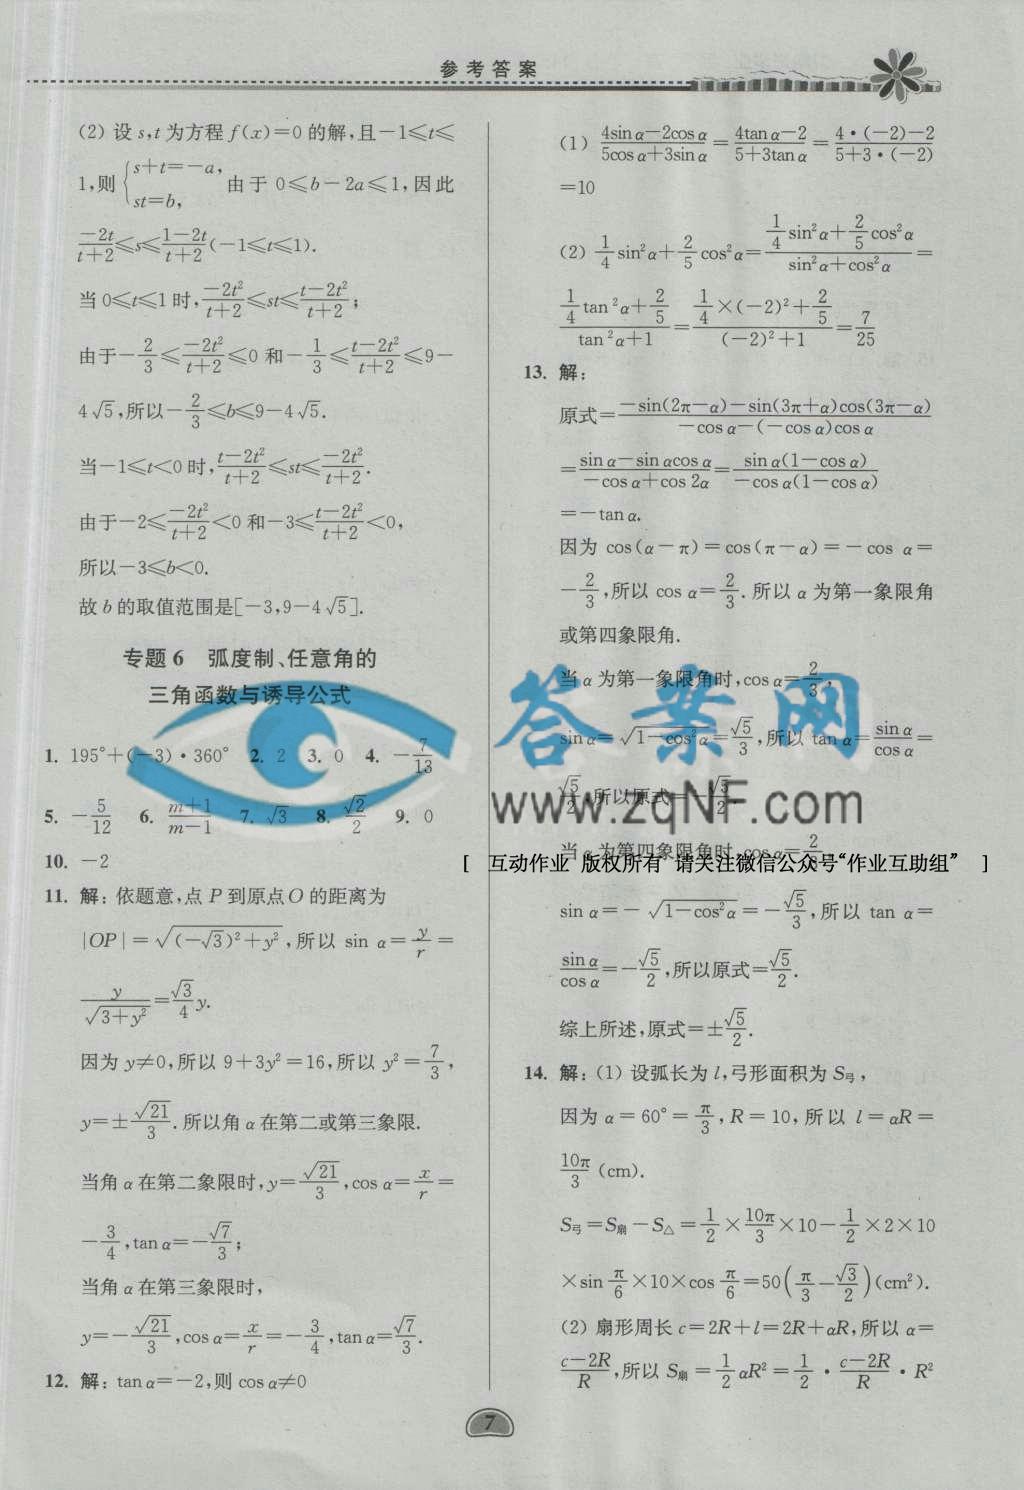 参考答案
(2) 设 s,t 为方程 f(x)=0 的解,且-1≤t≤
1,则{s+t=-a, st=b, 由于 0≤b-2a≤1,因此
(-2t)/(t+2)≤s≤(1-2t)/(t+2)(-1≤t≤1).
当 0≤t≤1 时,(-2t²)/(t+2)≤st≤(t-2t²)/(t+2);
由于-2/3≤(-2t²)/(t+2)≤0 和-1/3≤(t-2t²)/(t+2)≤9-
4√5,所以-2/3≤b≤9-4√5.
当-1≤t<0 时,(t-2t²)/(t+2)≤st≤(-2t²)/(t+2).
由于-2≤(-2t²)/(t+2)<0 和-3≤(t-2t²)/(t+2)<0,
所以-3≤b<0.
故 b 的取值范围是[-3,9-4√5].
专题 6 弧度制、任意角的
三角函数与诱导公式
1. 195°+(-3)·360° 2. 2 3. 0 4. -7/13
5. -5/12 6. (m+1)/(m-1) 7. √3 8. √2/2 9. 0
10. -2
11. 解:依题意,点 P 到原点 O 的距离为
|OP|=√((-√3)²+y²),所以 sin α=y/r=
y/√(3+y²)=(√3/4)y.
因为 y≠0,所以 9+3y²=16,所以 y²=7/3,
y=±√21/3.所以角 α 在第二或第三象限.
当角 α 在第二象限时,y=√21/3,cos α=x/r=
-3/4,tan α=-√7/3;
当角 α 在第三象限时,
y=-√21/3,cos α=x/r=-3/4,tan α=√7/3.
12. 解:tan α=-2,则 cos α≠0
(1) (4sin α-2cos α)/(5cos α+3sin α)=(4tan α-2)/(5+3tan α)=(4·(-2)-2)/(5+3·(-2))
=10
(2) 1/4 sin²α+2/5 cos²α=(1/4 sin²α+2/5 cos²α)/(sin²α+cos²α)=
(1/4 tan²α+2/5)/(tan²α+1)=(1/4×(-2)²+2/5)/((-2)²+1)=7/25
13. 解:
原式=(-sin(2π-α)-sin(3π+α)cos(3π-α))/(-cos α-(-cos α)cos α)
=(sin α-sin αcos α)/(-cos α+cos 2α)=(sin α(1-cos α))/(-cos α(1-cos α))
=-tan α.
因为 cos(α-π)=cos(π-α)=-cos α=
-2/3,所以 cos α=2/3.所以 α 为第一象限角
或第四象限角.
当 α 为第一象限角时,cos α=2/3,
sin α=√(1-cos²α)=√5/3,所以 tan α=sin α/cos α=
√5/2,所以原式=-√5/2.
当 α 为第四象限角时,cos α=2/3,
sin α=-√(1-cos²α)=-√5/3,所以 tan α=
sin α/cos α=-√5/2,所以原式=√5/2.
综上所述,原式=±√5/2.
14. 解:(1) 设弧长为 l,弓形面积为 S弓,
因为 α=60°=π/3,R=10,所以 l=αR=
10π/3 (cm).
S弓=S扇-S△=1/2×10π/3×10-1/2×2×10
×sin π/6×10×cos π/6=50(π/3-√3/2)(cm²).
(2) 扇形周长 c=2R+l=2R+αR,所以 α=
(c-2R)/R,所以 S扇=1/2 αR²=1/2·(c-2R)/R·R²
答案网
www.zqNF.com
[ 互动作业 版权所有 请关注微信公众号“作业互助组” ]
7